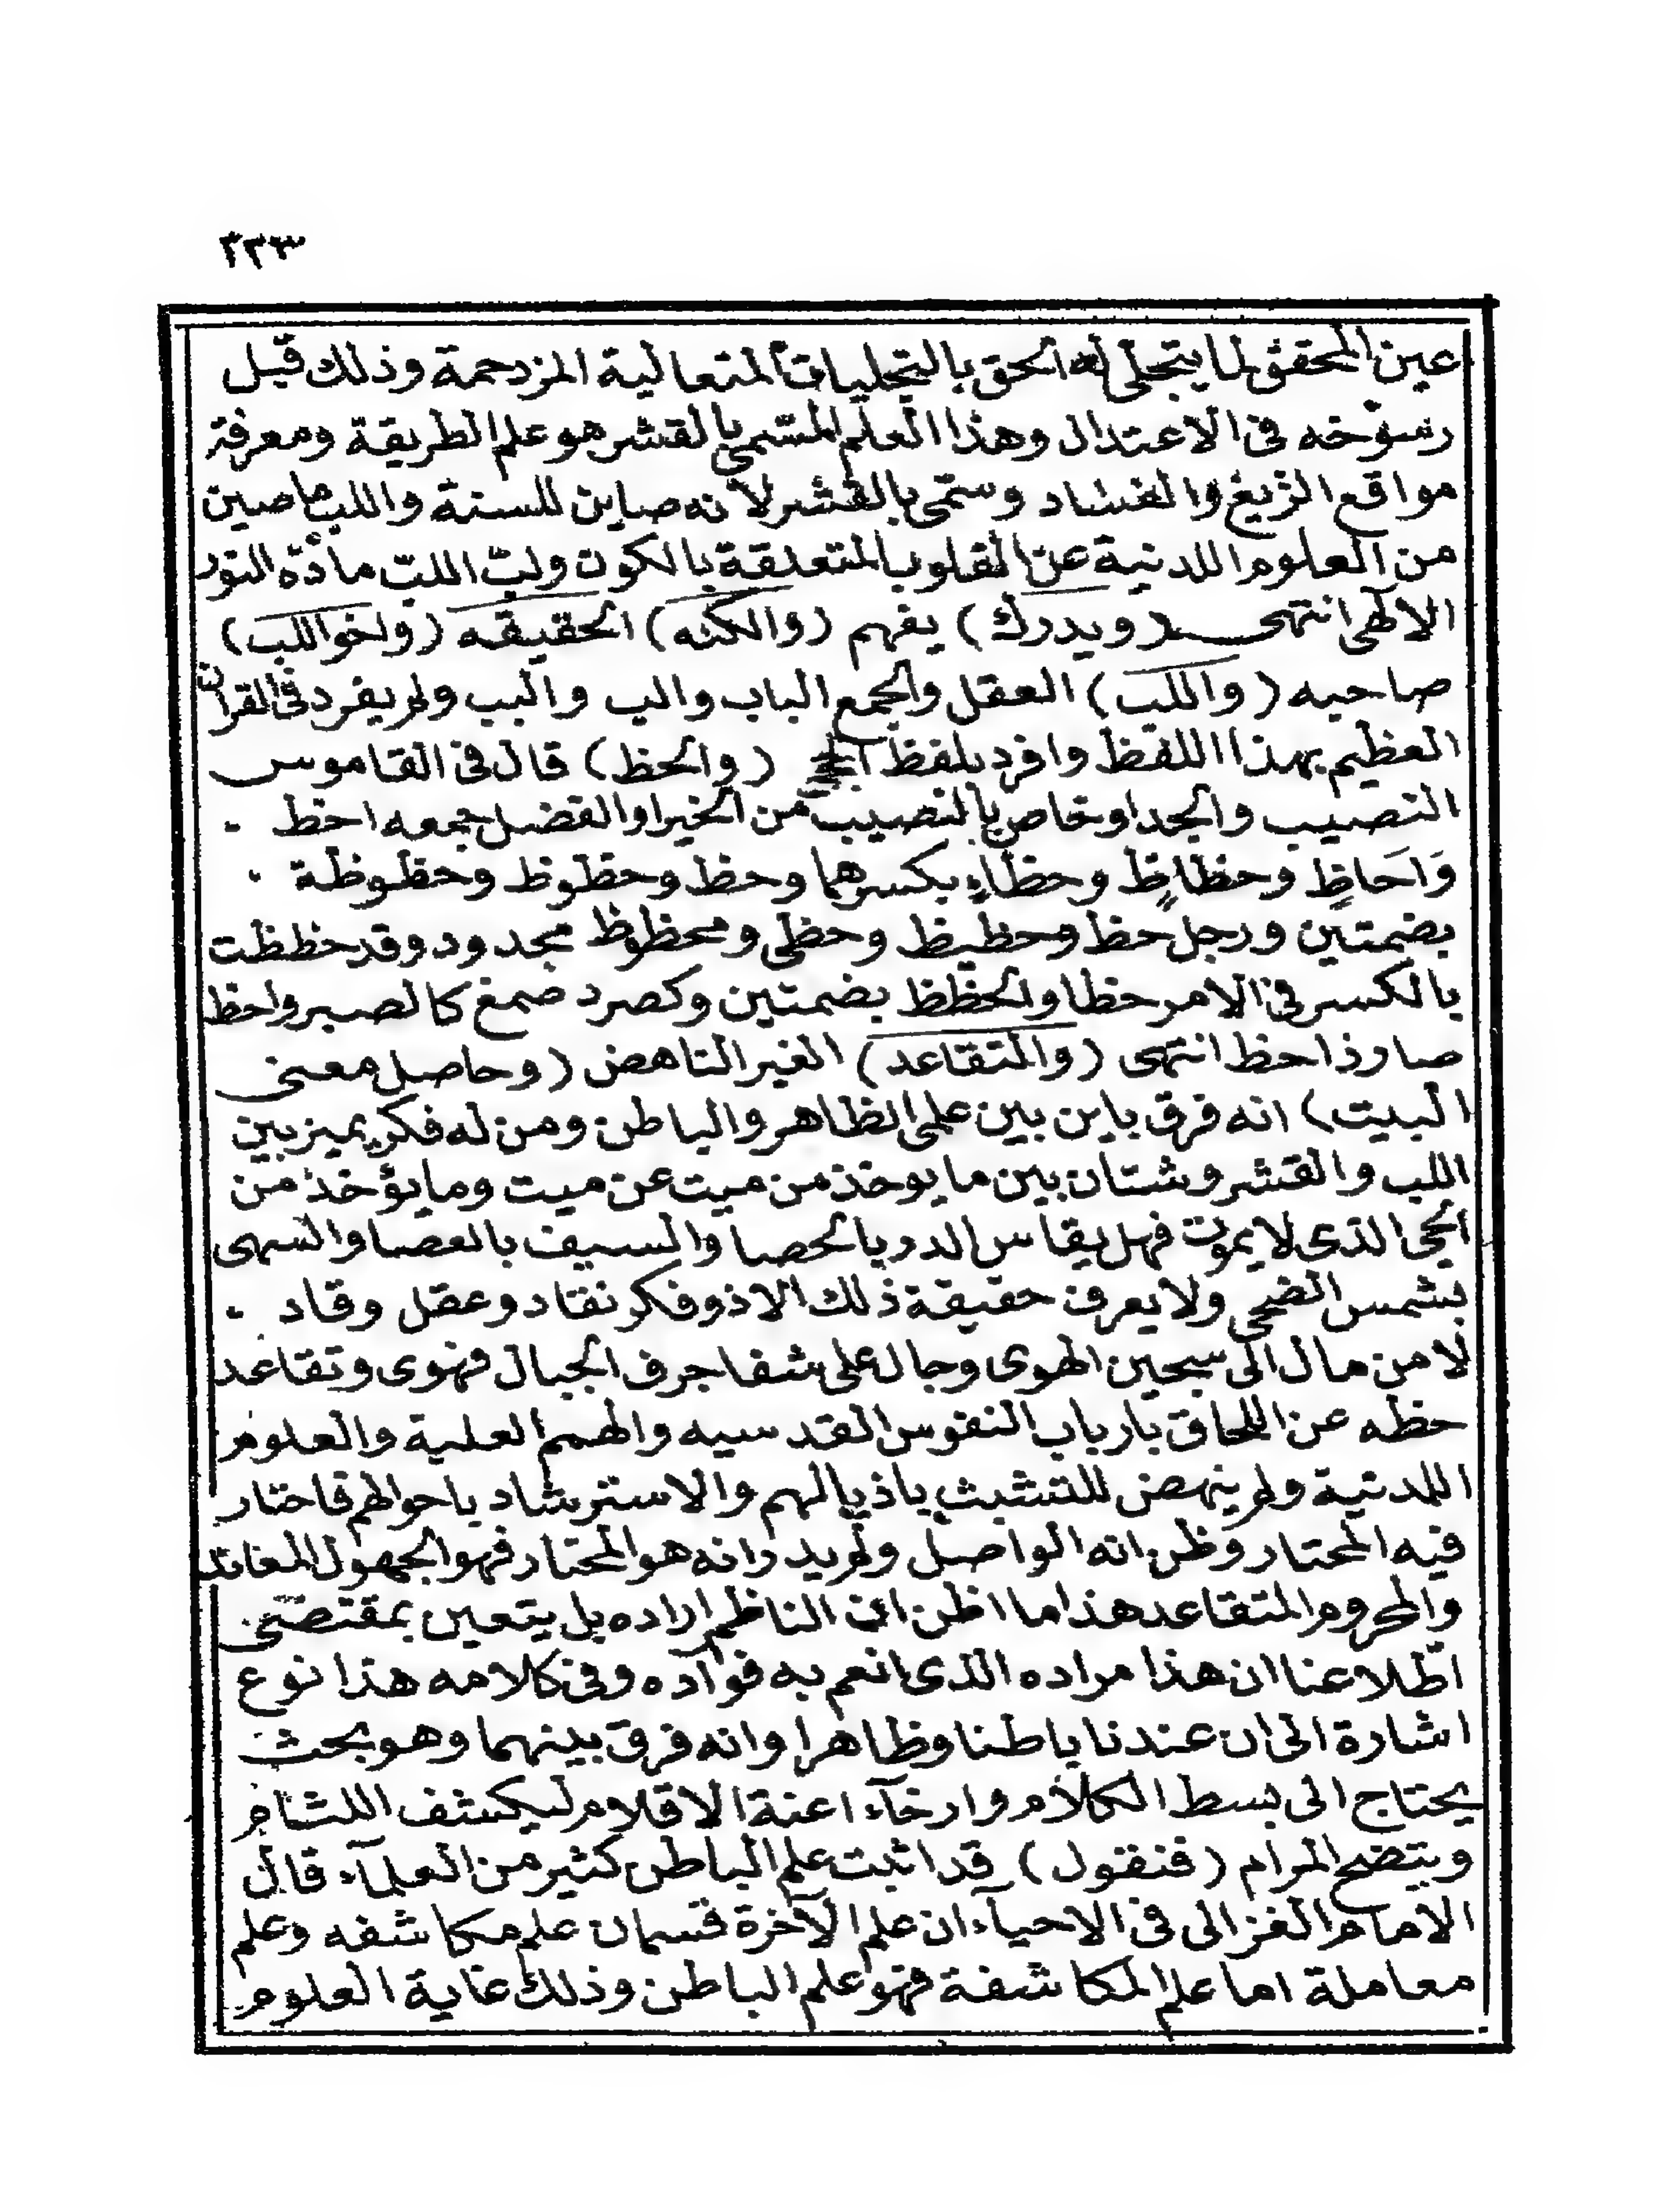 ٣٣٣
عين المحقق لما يتجلى له الحق بالتجليات المتعالية المزدحمة وذلك قبل
رسوخه فى الاعتدال وهذا العلم المسمى بالقشر هو علم الطريقة ومعرفة
مواقع الزيغ والفساد وستمى بالقشر لانه صاين للسنة واللب ما صين
من العلوم اللدنية عن القلوب المتعلقة بالكون ولبّ اللبّ مادّة النور
الالهى انتهى (ويدرك) يفهم (والكنه) الحقيقه (واخو اللب)
صاحبه (واللب) العقل والجمع الباب والب والبب ولم يفرد فى القران
العظيم بهذا اللفظ وافرد بلفظ (والحظ) قال فى القاموس
النصيب والجد او خاص بالنصيب من الخير او الفضل جمعه احظ -
وَاَحَاظٍ وحظاظٍ وحظاءٍ بكسرهما وحظ وحظوظ وحظوظة .
بضمتين ورجل حظ وحظيظ وحظى ومحظوظ مجدود وقد حظظت
بالكسر فى الامر حظا والحظظ بضمتين وكصرد صمغ كالصبر واحظ
صار ذا حظ انتهى (والمتقاعد) الغير الناهض (وحاصل معنى
البيت) انه فرق باين بين علمى الظاهر والباطن ومن له فكر يميز بين
اللب والقشر وشتان بين ما يوخذ من ميت عن ميت وما يؤخذ من
الحى الذى لا يموت فهل يقاس الدر بالحصا والسيف بالعصا والسهى
بشمس الضحى ولا يعرف حقيقة ذلك الا ذو فكر نقاد وعقل وقاد -
لا من مال الى سجين الهوى وجال على شفا جرف الجبال فهوى وتقاعد
حظه عن اللحاق بارباب النفوس القدسيه والهمم العلية والعلوم
اللدنية ولم ينهض للتشبث باذيالهم والاسترشاد باحوالهم فاحتار
فيه المحتار وظن انه الواصل ولم يدر انه هو المحتار فهو الجهول المعاند
والمحروم المتقاعد هذا ما اظن ان الناظم اراده بل يتعين بمقتضى
اطلاعنا ان هذا مراده الذى انعم به فوآده وفى كلامه هذا نوع
اشارة الى ان عندنا باطنا وظاهرا وانه فرق بينهما وهو بحث
يحتاج الى بسط الكلام وارخآء اعنة الاقلام ليكشف اللثام
ويتضح المرام (فنقول) قد اثبت علم الباطن كثير من العلمآء قال
الامام الغزالى فى الاحيآء ان علم الآخرة قسمان علم مكاشفه وعلم
معاملة اما علم المكاشفة فهو علم الباطن وذلك غاية العلوم